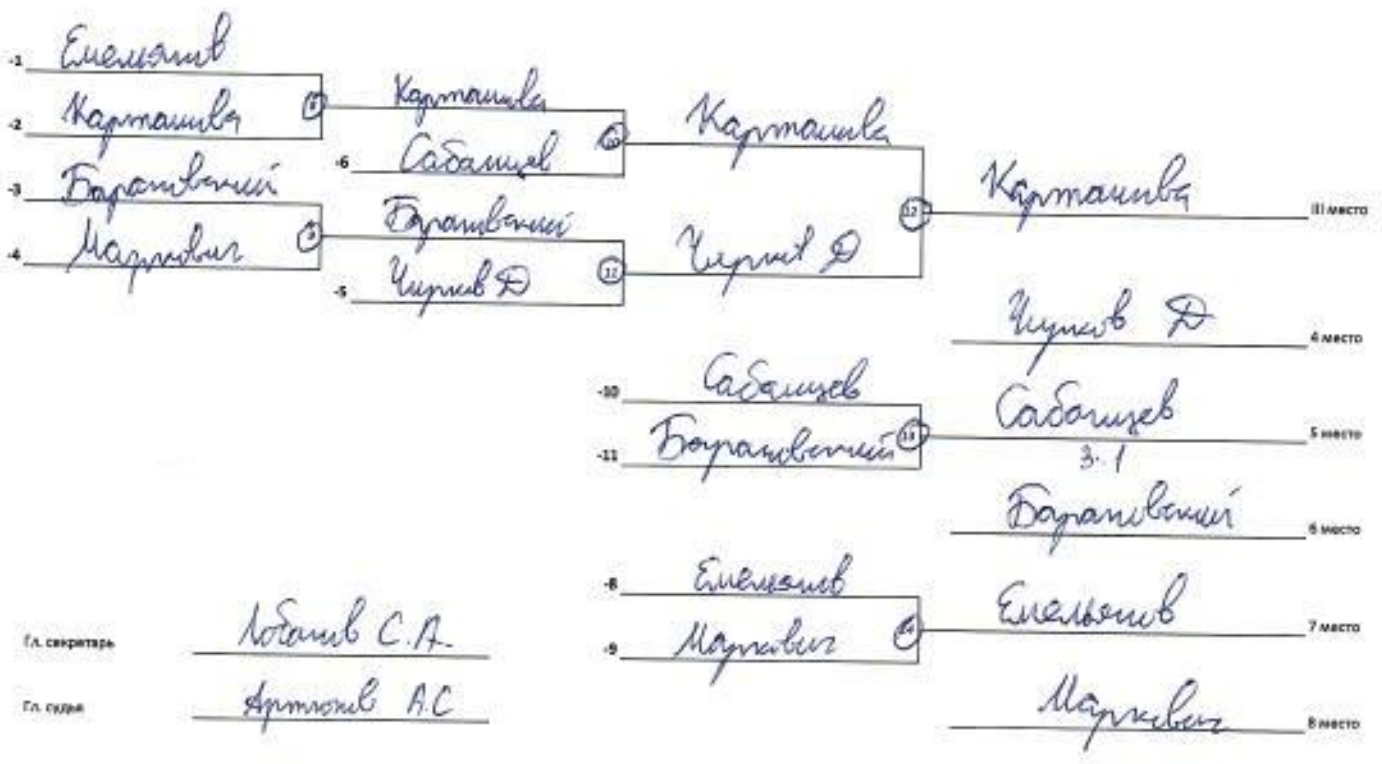 -1 Емельянов
-2 Карташова
-3 Барановский
-4 Маркович
8
9
Карташова
-6 Сабанцев
Барановский
-5 Чирков Д
10
11
Карташова
Чирков Д
12
Карташова III место
Чирков Д 4 место
-10 Сабанцев
-11 Барановский
13
Сабанцев 5 место
3-1
Барановский 6 место
-8 Емельянов
-9 Маркович
14
Емельянов 7 место
Маркович 8 место
Гл. секретарь Лобанов С.А.
Гл. судья Артюков А.С